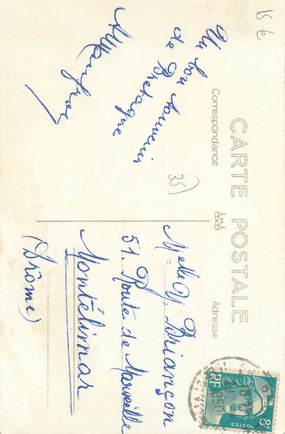 CARTE POSTALE
Correspondance
Adresse
Un bon souvenir
de Bretagne
35
15 €
Melle Y. Briançon
51. Route de Marseille
Montélimar
(Drôme)
8F
POSTES
RF